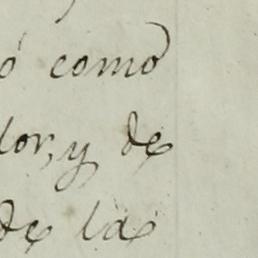 ó como
dor, y de
de la